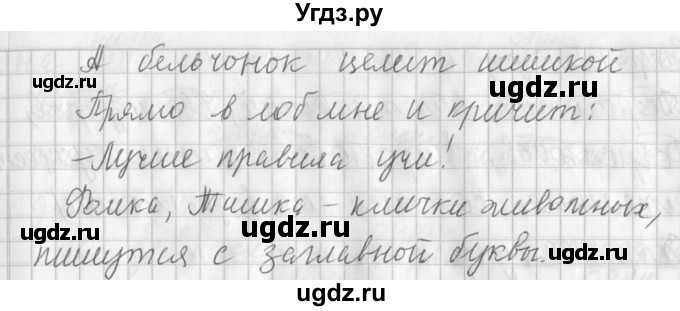 Угдз.ру
А бельчонок целит шишкой
Прямо в лоб мне и кричит:
- Лучше правила учи!
Фомка, Тишка - клички животных,
пишутся с заглавной буквы.
ugdz.ru
ugdz.ru
ugdz.ru
ugdz.ru
ugdz.ru
ugdz.ru
ugdz.ru
ugdz.ru